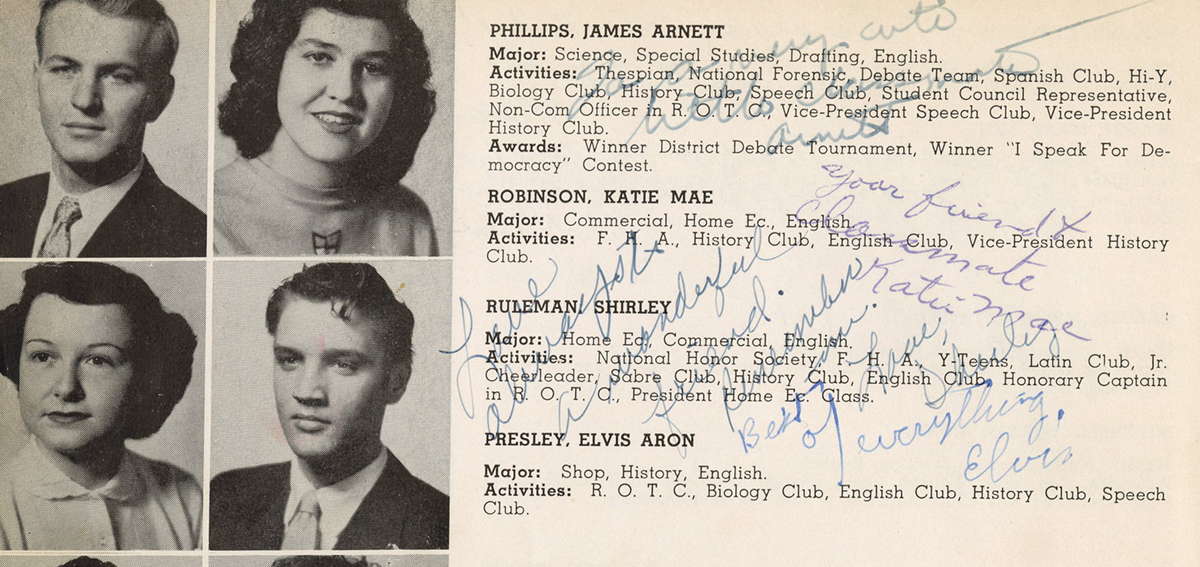 PHILLIPS, JAMES ARNETT
Major: Science, Special Studies, Drafting, English.
Activities: Thespian, National Forensic, Debate Team, Spanish Club, Hi-Y,
Biology Club, History Club, Speech Club, Student Council Representative,
Non-Com Officer in R. O. T. C., Vice-President Speech Club, Vice-President
History Club.
Awards: Winner District Debate Tournament, Winner "I Speak For De-
mocracy" Contest.
To a very cute
little classmate
Arnett
ROBINSON, KATIE MAE
Major: Commercial, Home Ec., English.
Activities: F. H. A., History Club, English Club, Vice-President History
Club.
Your friend &
Classmate
Katie Mae
RULEMAN, SHIRLEY
Major: Home Ec., Commercial, English.
Activities: National Honor Society, F. H. A., Y-Teens, Latin Club, Jr.
Cheerleader, Sabre Club, History Club, English Club, Honorary Captain
in R. O. T. C., President Home Ec. Class.
a wonderful
friend.
Remember
me.
Love,
Shirley
PRESLEY, ELVIS ARON
Major: Shop, History, English.
Activities: R. O. T. C., Biology Club, English Club, History Club, Speech
Club.
Best
of everything.
Elvis